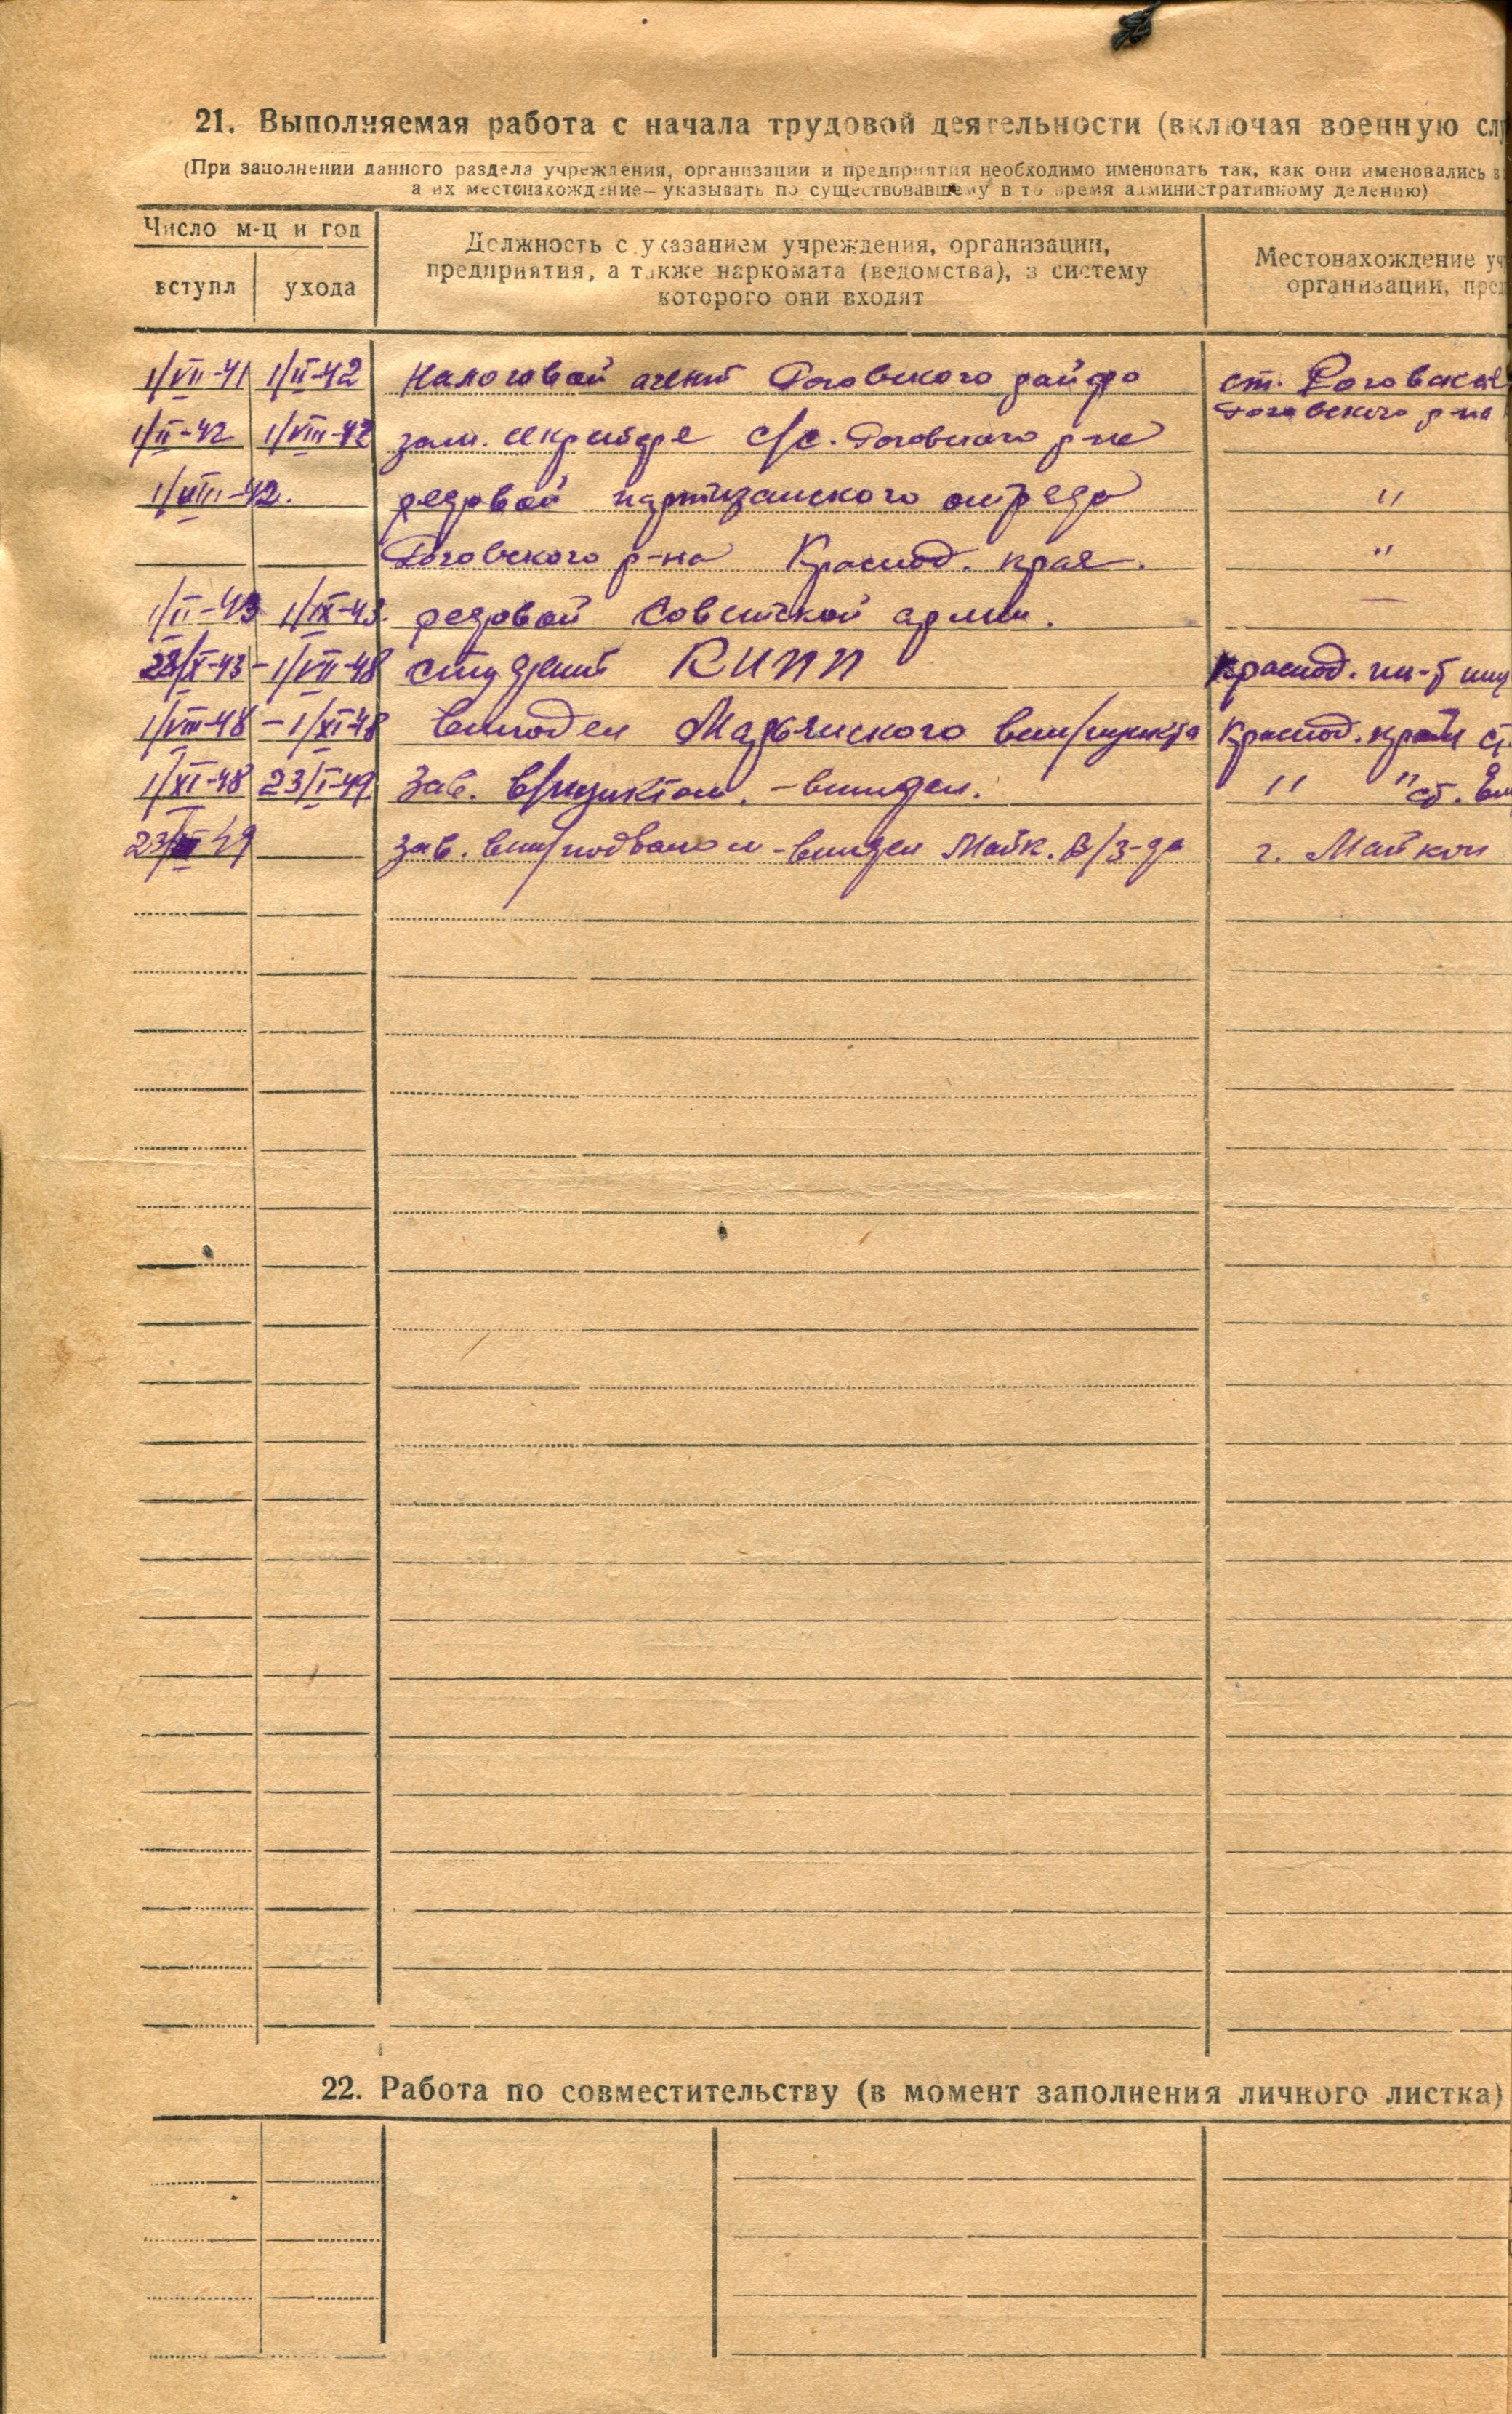 21. Выполняемая работа с начала трудовой деятельности (включая военную сл
(При заполнении данного раздела учреждения, организации и предприятия необходимо именовать так, как они именовались в
а их местонахождение—указывать по существовавшему в то время административному делению)
Число м-ц и год
вступл ухода
Должность с указанием учреждения, организации,
предприятия, а также наркомата (ведомства), в систему
которого они входят
Местонахождение уч
организации, пред
1/VII-41 1/II-42 Налоговой агент Роговского райфо ст. Роговская
Роговского р-на
1/II-42 1/VIII-42 зам. секретаря с/с. Роговского р-на
1/VIII-42. рядовой партизанского отряда "
Роговского р-на Краснод. края. "
1/II-43 1/IX-43. рядовой Советской армии. —
23/X-43 - 1/VII-48 студент КИПП Краснод. ин-т
1/VIII-48 - 1/XI-48 винодел Марьянского вин/пункта Краснод. край ст
1/XI-48 23/I-49 Зав. в/пунктом. - винодел. " " ст.
23/III 49 Зав. вин/подвалом - винодел Майк. В/з-да г. Майкоп
22. Работа по совместительству (в момент заполнения личного листка)